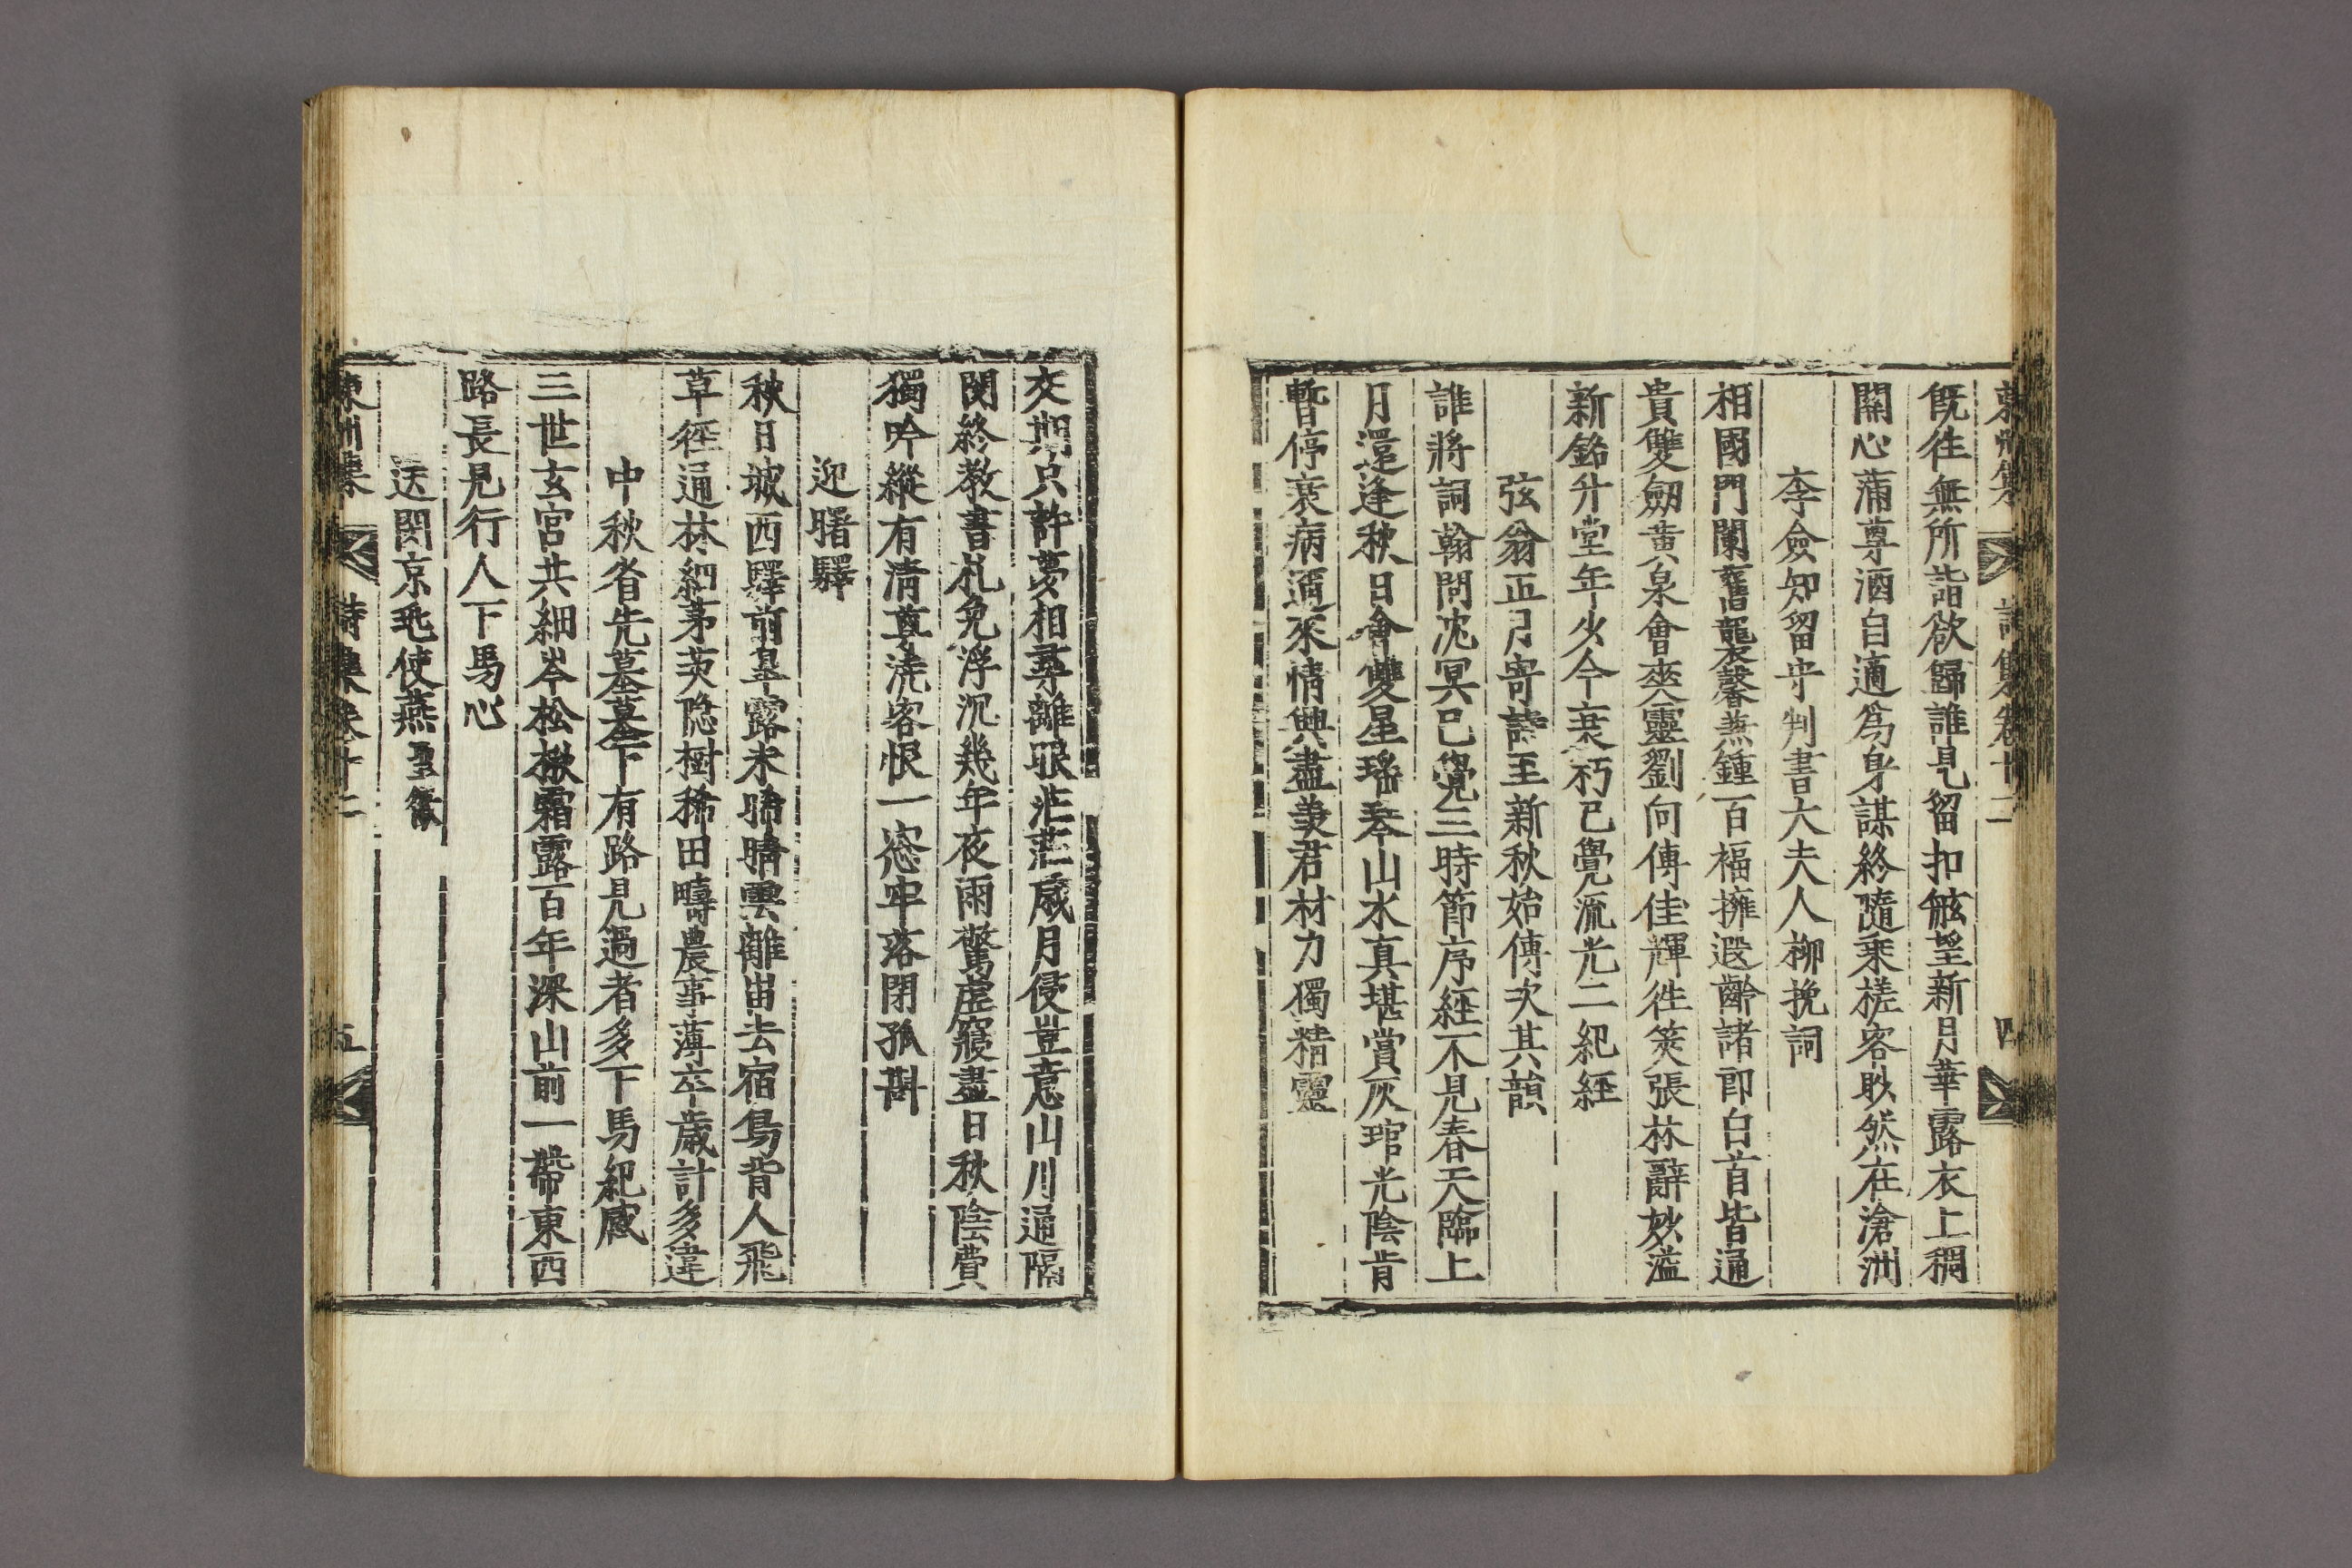 東州集 詩集卷十二 四
旣徃無所詣欲歸誰見留扣舷望新月華露衣上稠
關心蒲尊酒自適爲身謀終隨乘槎客眇然在滄洲
李僉知留守判書大夫人柳挽詞
相國門闌舊襲馨燕鍾百福擁遐齡諸郎白首皆通
貴雙劒黃泉會爽靈劉向傳佳輝徃筴張林辭妙溢
新銘升堂年少今衰朽已覺流光二紀經
弦翁正月寄詩至新秋始傳次其韻
誰將詞翰問沈冥已覺三時節序經不見春天臨上
月還逢秋日會雙星瑤琴山水真堪賞灰琯光陰肯
暫停衰病邇來情興盡羡君材力獨精靈
交期只許夢相尋離恨茫茫歲月侵豈意山川通隔
閡終教書札免浮沉幾年夜雨驚虛寢盡日秋陰費
獨吟縱有淸尊澆客恨一窓牢落閉孤斟
迎曙驛
秋日坡西驛前皐露未晞晴雲離岫去宿鳥背人飛
草徑通林細茅茨隱樹稀田疇農事薄卒歲計多違
中秋省先墓墓下有路見過者多下馬紀感
三世玄宮共細岑松楸霜露百年深山前一帶東西
路長見行人下馬心
送閔京兆使燕 聖徽
東州集 詩集卷十二 五